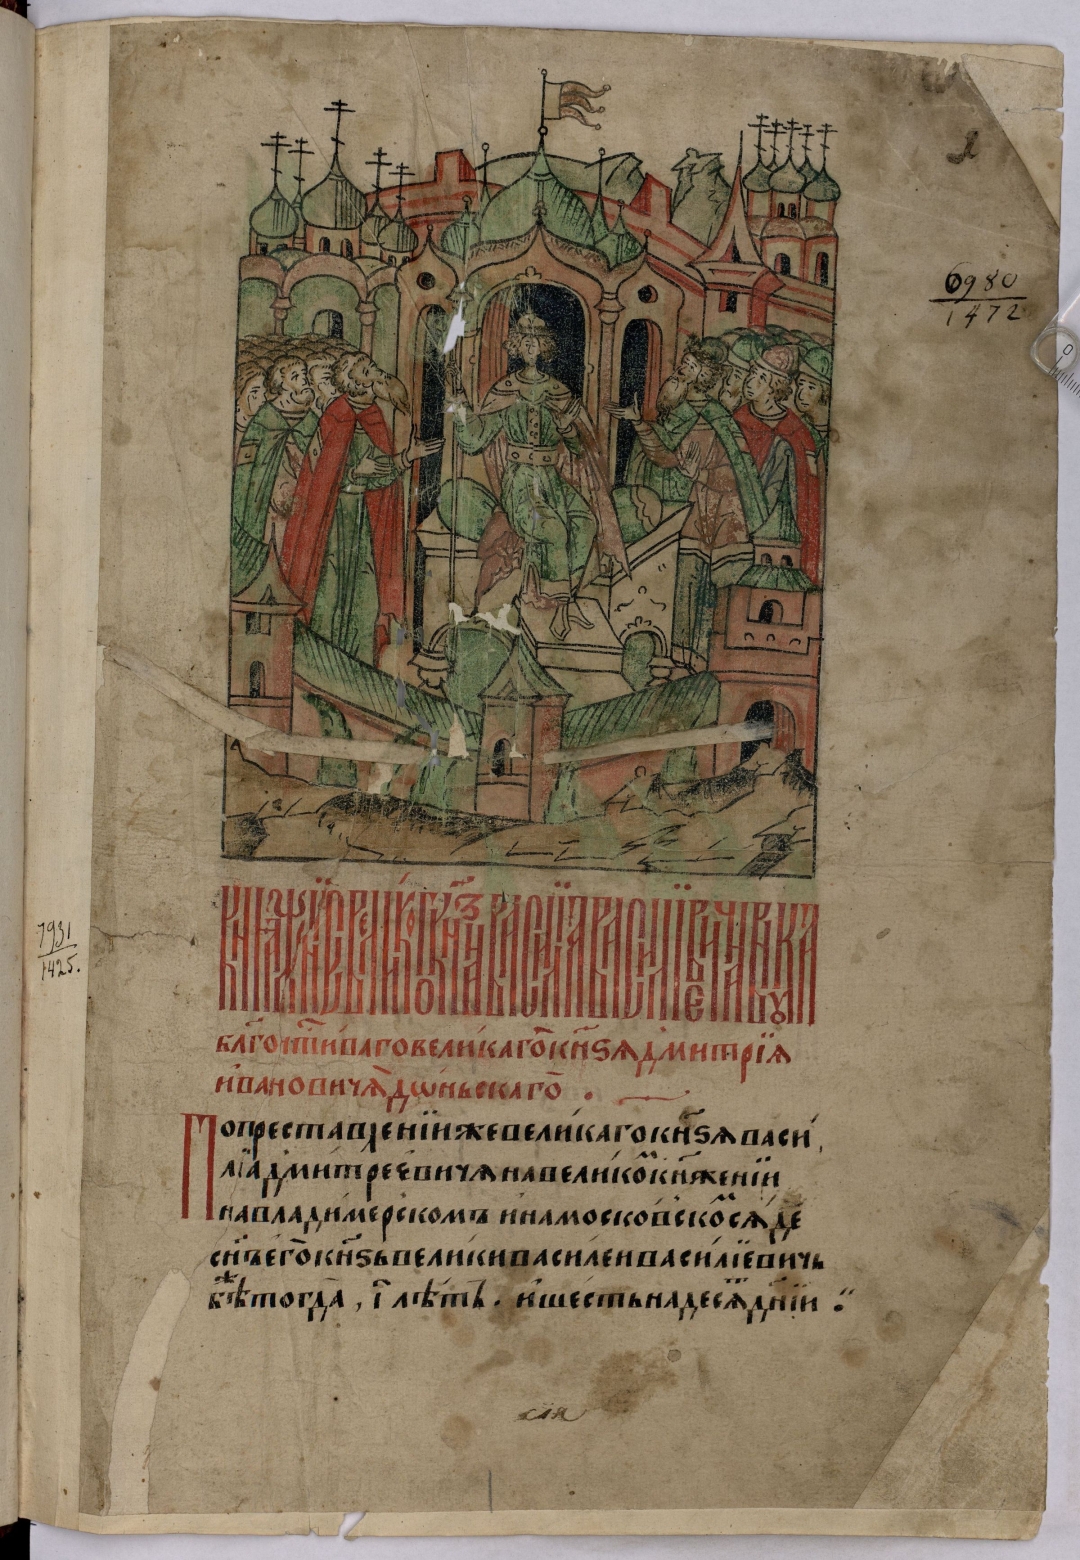 6980
1472
кнѧженїе великого кнѧзѧ василїа василїевича внука
6931
1425.
блгочтиваго великаго кнѕѧ дмитрїѧ
ивановичѧ дѡньскаго .
По преставленїи же великаго кнѕѧ васи
лїа дмитреевичѧ на великом кнѧженїи
на владимерском и на московском сѧде
снъ его кнѕь велики василеи василїевичь
бѣ тогда , ї лѣтъ . и шестьнадесѧ днїи :~